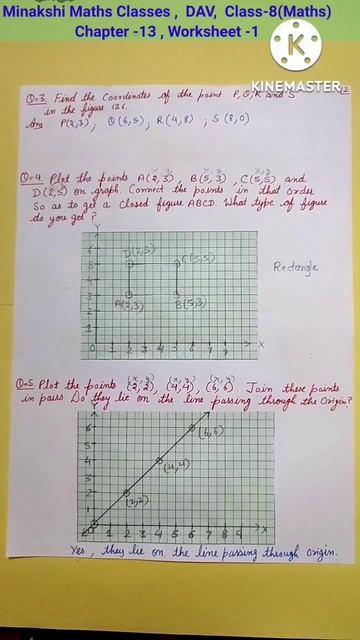 Minakshi Maths Classes , DAV, Class-8(Maths)
Chapter -13 , Worksheet -1
KINEMASTER
Q=3. Find the Coordinates of the point P, Q, R and S
in the figure 13.6.
Ans P(2,3) ; Q(6,5) ; R(4,8) ; S(8,0)
Q=4. Plot the points A(2,3), B(5,3), C(5,5) and
D(2,5) on graph. Connect the points in that order
So as to get a closed figure ABCD. What type of figure
do you get?
Y
6
D(2,5) C(5,5)
5
4
3
A(2,3) B(5,3)
2
1
0 1 2 3 4 5 6 7 8 9 X
Rectangle
Q=5. Plot the points (2,2), (4,4), (6,6). Join these points
in pairs. Do they lie on the line passing through the Origin?
Y
6
(6,6)
5
4
(4,4)
3
2
(2,2)
1
0 1 2 3 4 5 6 7 8 9 X
Yes, they lie on the line passing through origin.